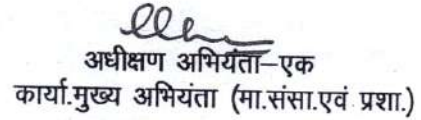 अधीक्षण अभियंता–एक
कार्या.मुख्य अभियंता (मा.संसा.एवं प्रशा.)